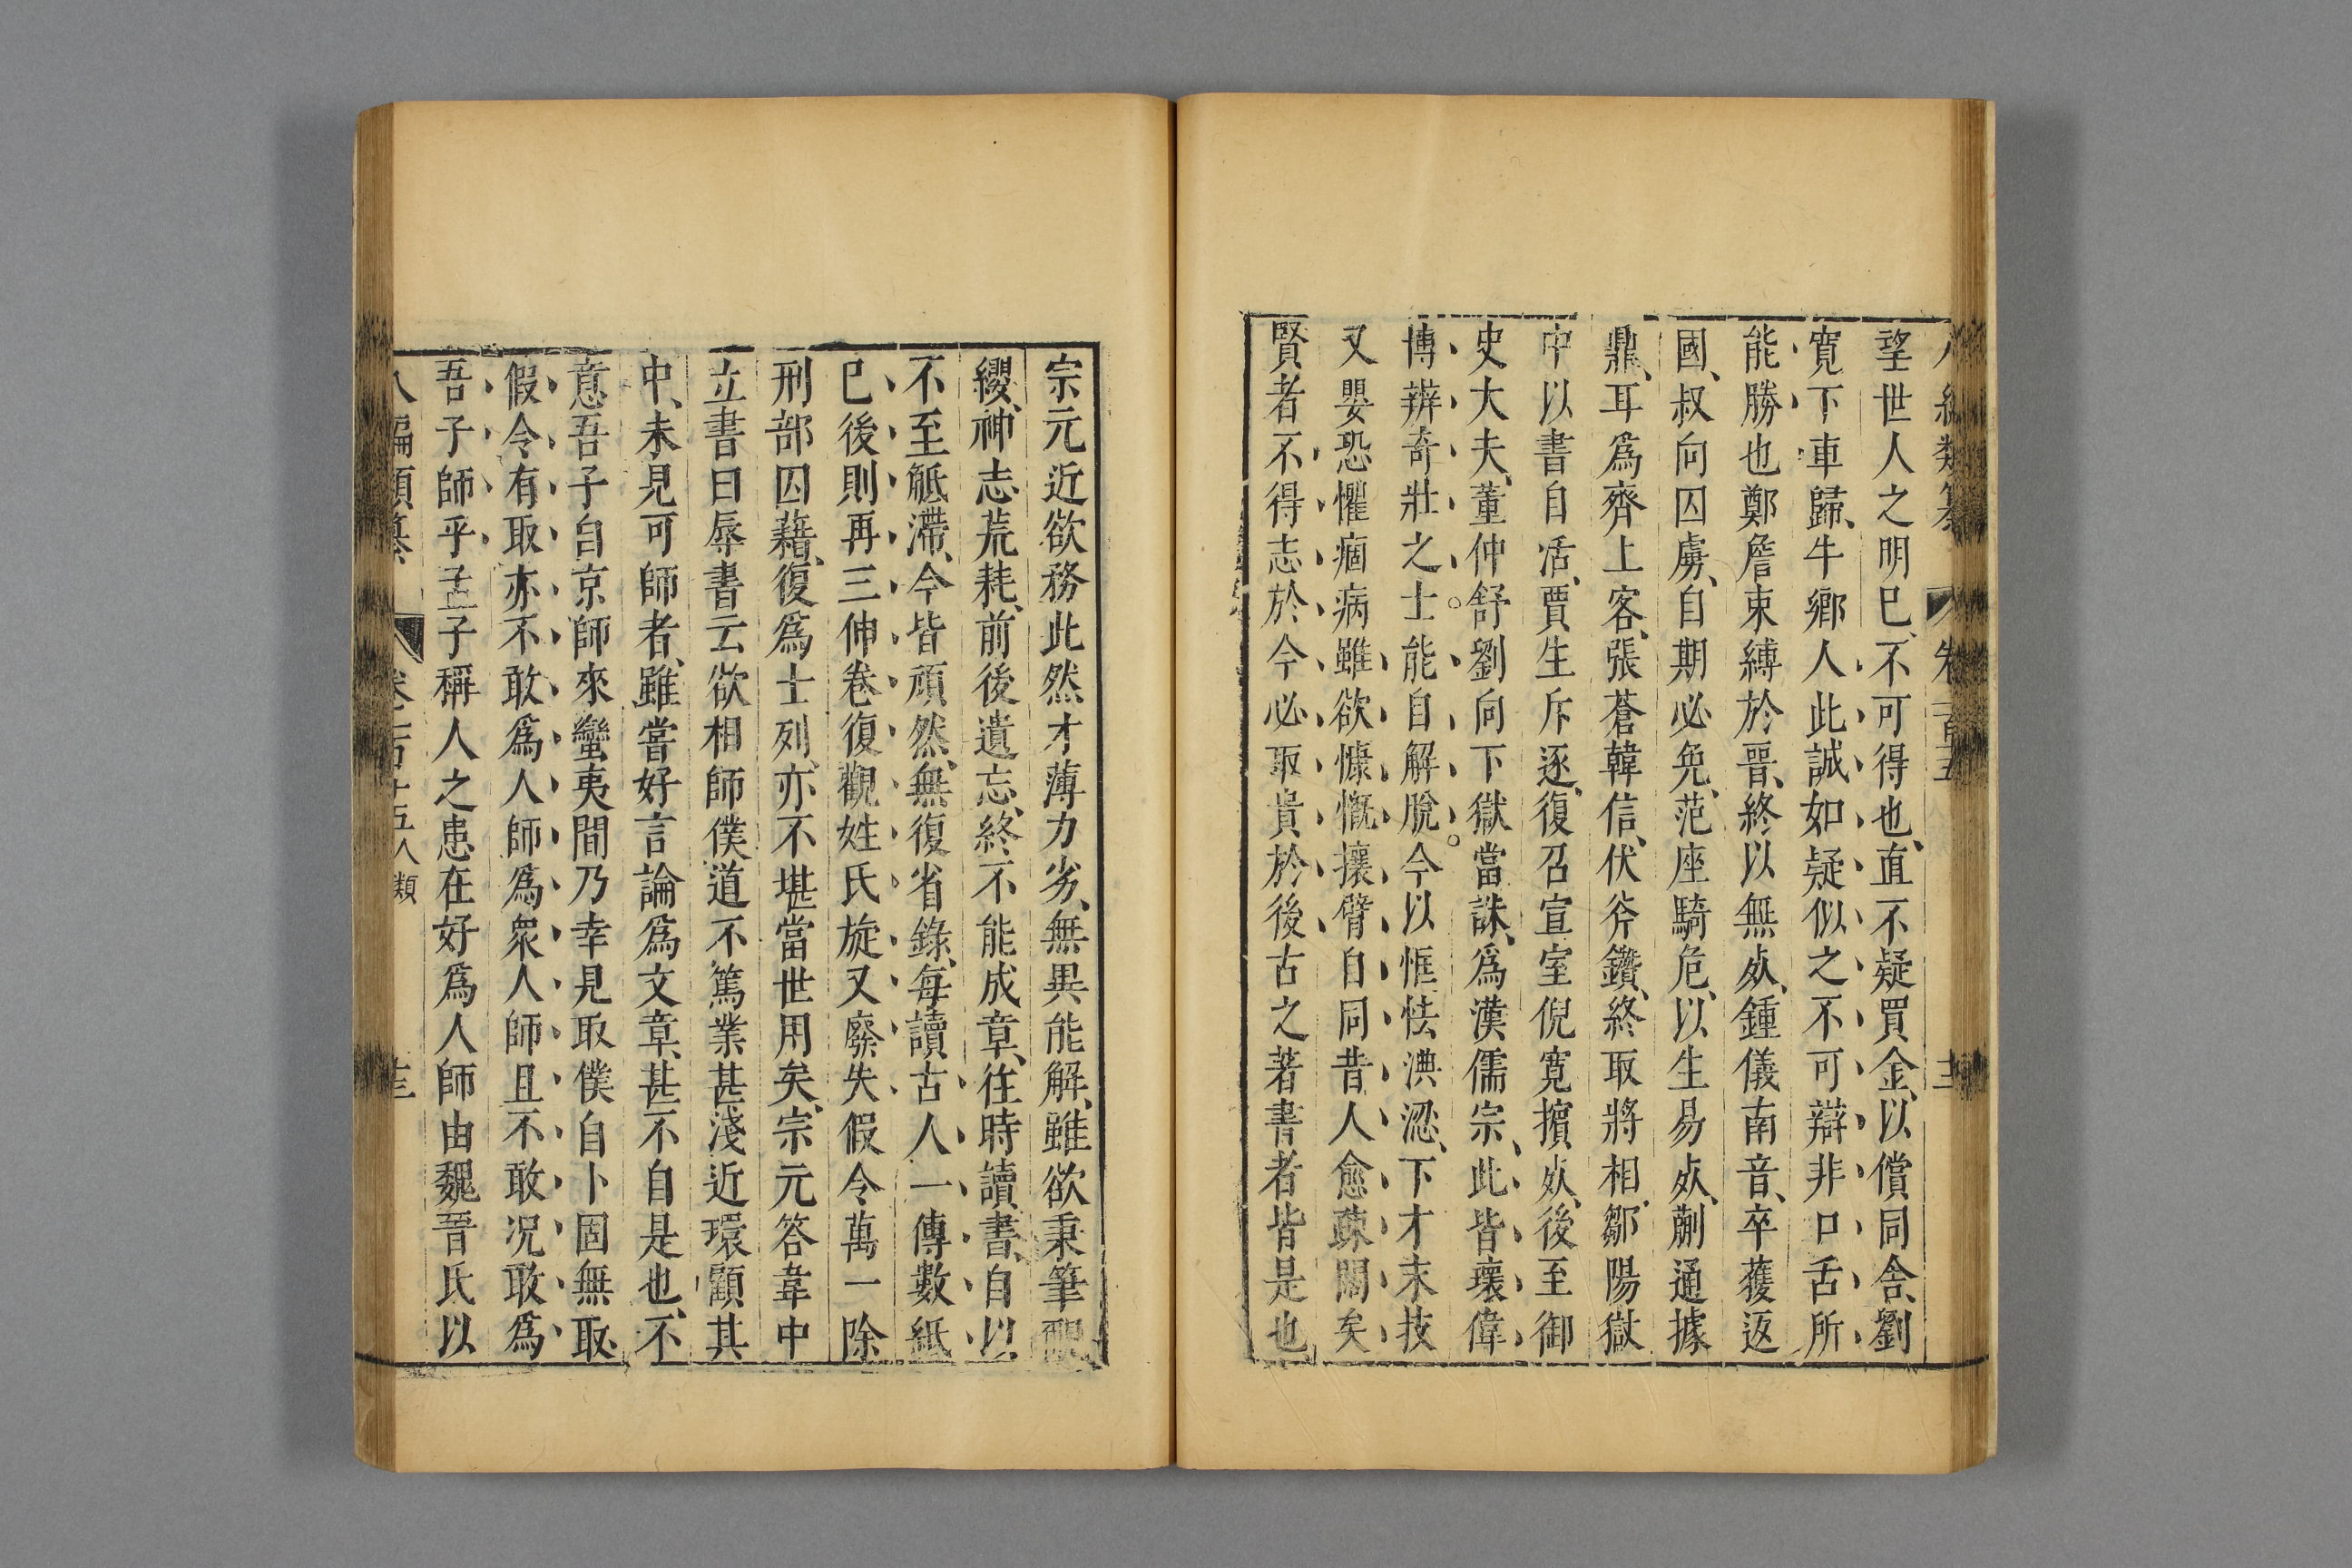 望世人之明已、不可得也、直不疑買金、以償同舍、劉
寬下車歸、牛鄉人此誠如疑似之不可辯非口舌所
能勝也鄭詹束縛於晉、終以無死、鍾儀南音、卒獲返
國、叔向囚虜、自期必免、范座騎危、以生易死、蒯通據
鼎、耳爲齊上客、張蒼韓信、伏斧鑕、終取將相、鄒陽獄
中以書自活、賈生斥逐、復召宣室倪寬擯死、後至御
史大夫、董仲舒劉向下獄當誅、爲漢儒宗、此皆瓌偉
博辨奇壯之士能自解脫。今以恇怯淟涊、下才末技
又嬰恐懼痼病雖欲慷慨攘臂自同昔人愈疎闊矣
賢者不得志於今必取貴於後古之著書者皆是也
宗元近欲務此然才薄力劣、無異能解、雖欲秉筆覼
纓、神志荒耗、前後遺忘、終不能成章、往時讀書、自以
不至觝滯、今皆頑然、無復省錄、每讀古人一傳數紙
已後則再三伸卷復觀姓氏旋又廢失假令萬一除
刑部囚藉、復爲士列、亦不堪當世用矣、宗元答韋中
立書曰辱書云欲相師僕道不篤業甚淺近環顧其
中、未見可師者、雖嘗好言論爲文章、甚不自是也、不
意吾子自京師來蠻夷間乃幸見取僕自卜固無取
假令有取亦不敢爲人師爲衆人師且不敢况敢爲
吾子師乎孟子稱人之患在好爲人師由魏晉氏以
編類纂 卷一百十五人類 十三